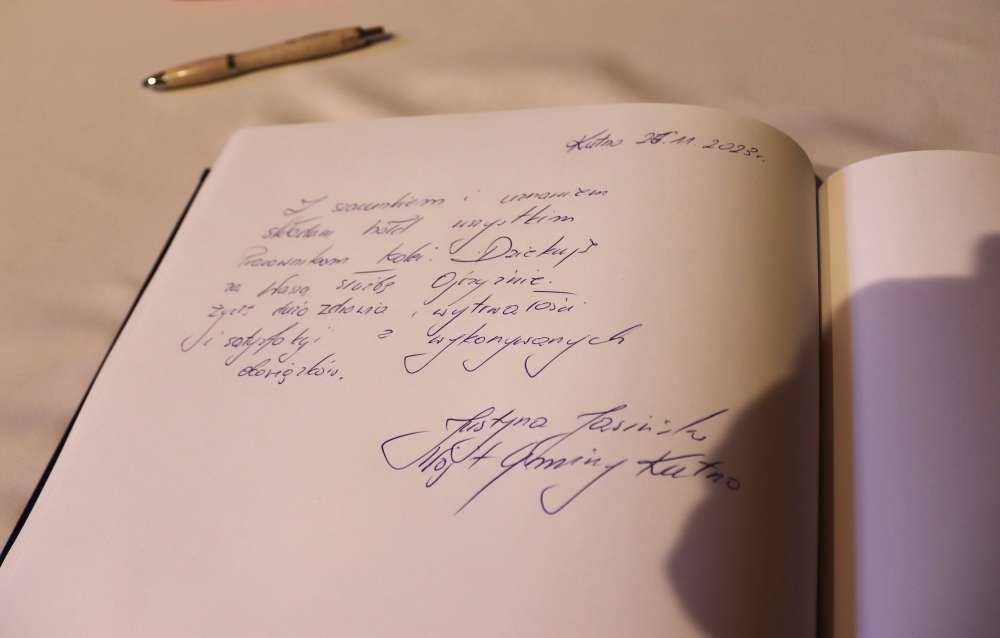 Kutno 25.11.2023r.
Z szacunkiem i uznaniem
składam hołd wszystkim
Pracownikom Kolei. Dziękuję
za Waszą służbę Ojczyźnie.
Życzę dużo zdrowia, wytrwałości
i satysfakcji z wykonywanych
obowiązków.
Justyna Jasińska
Wójt Gminy Kutno